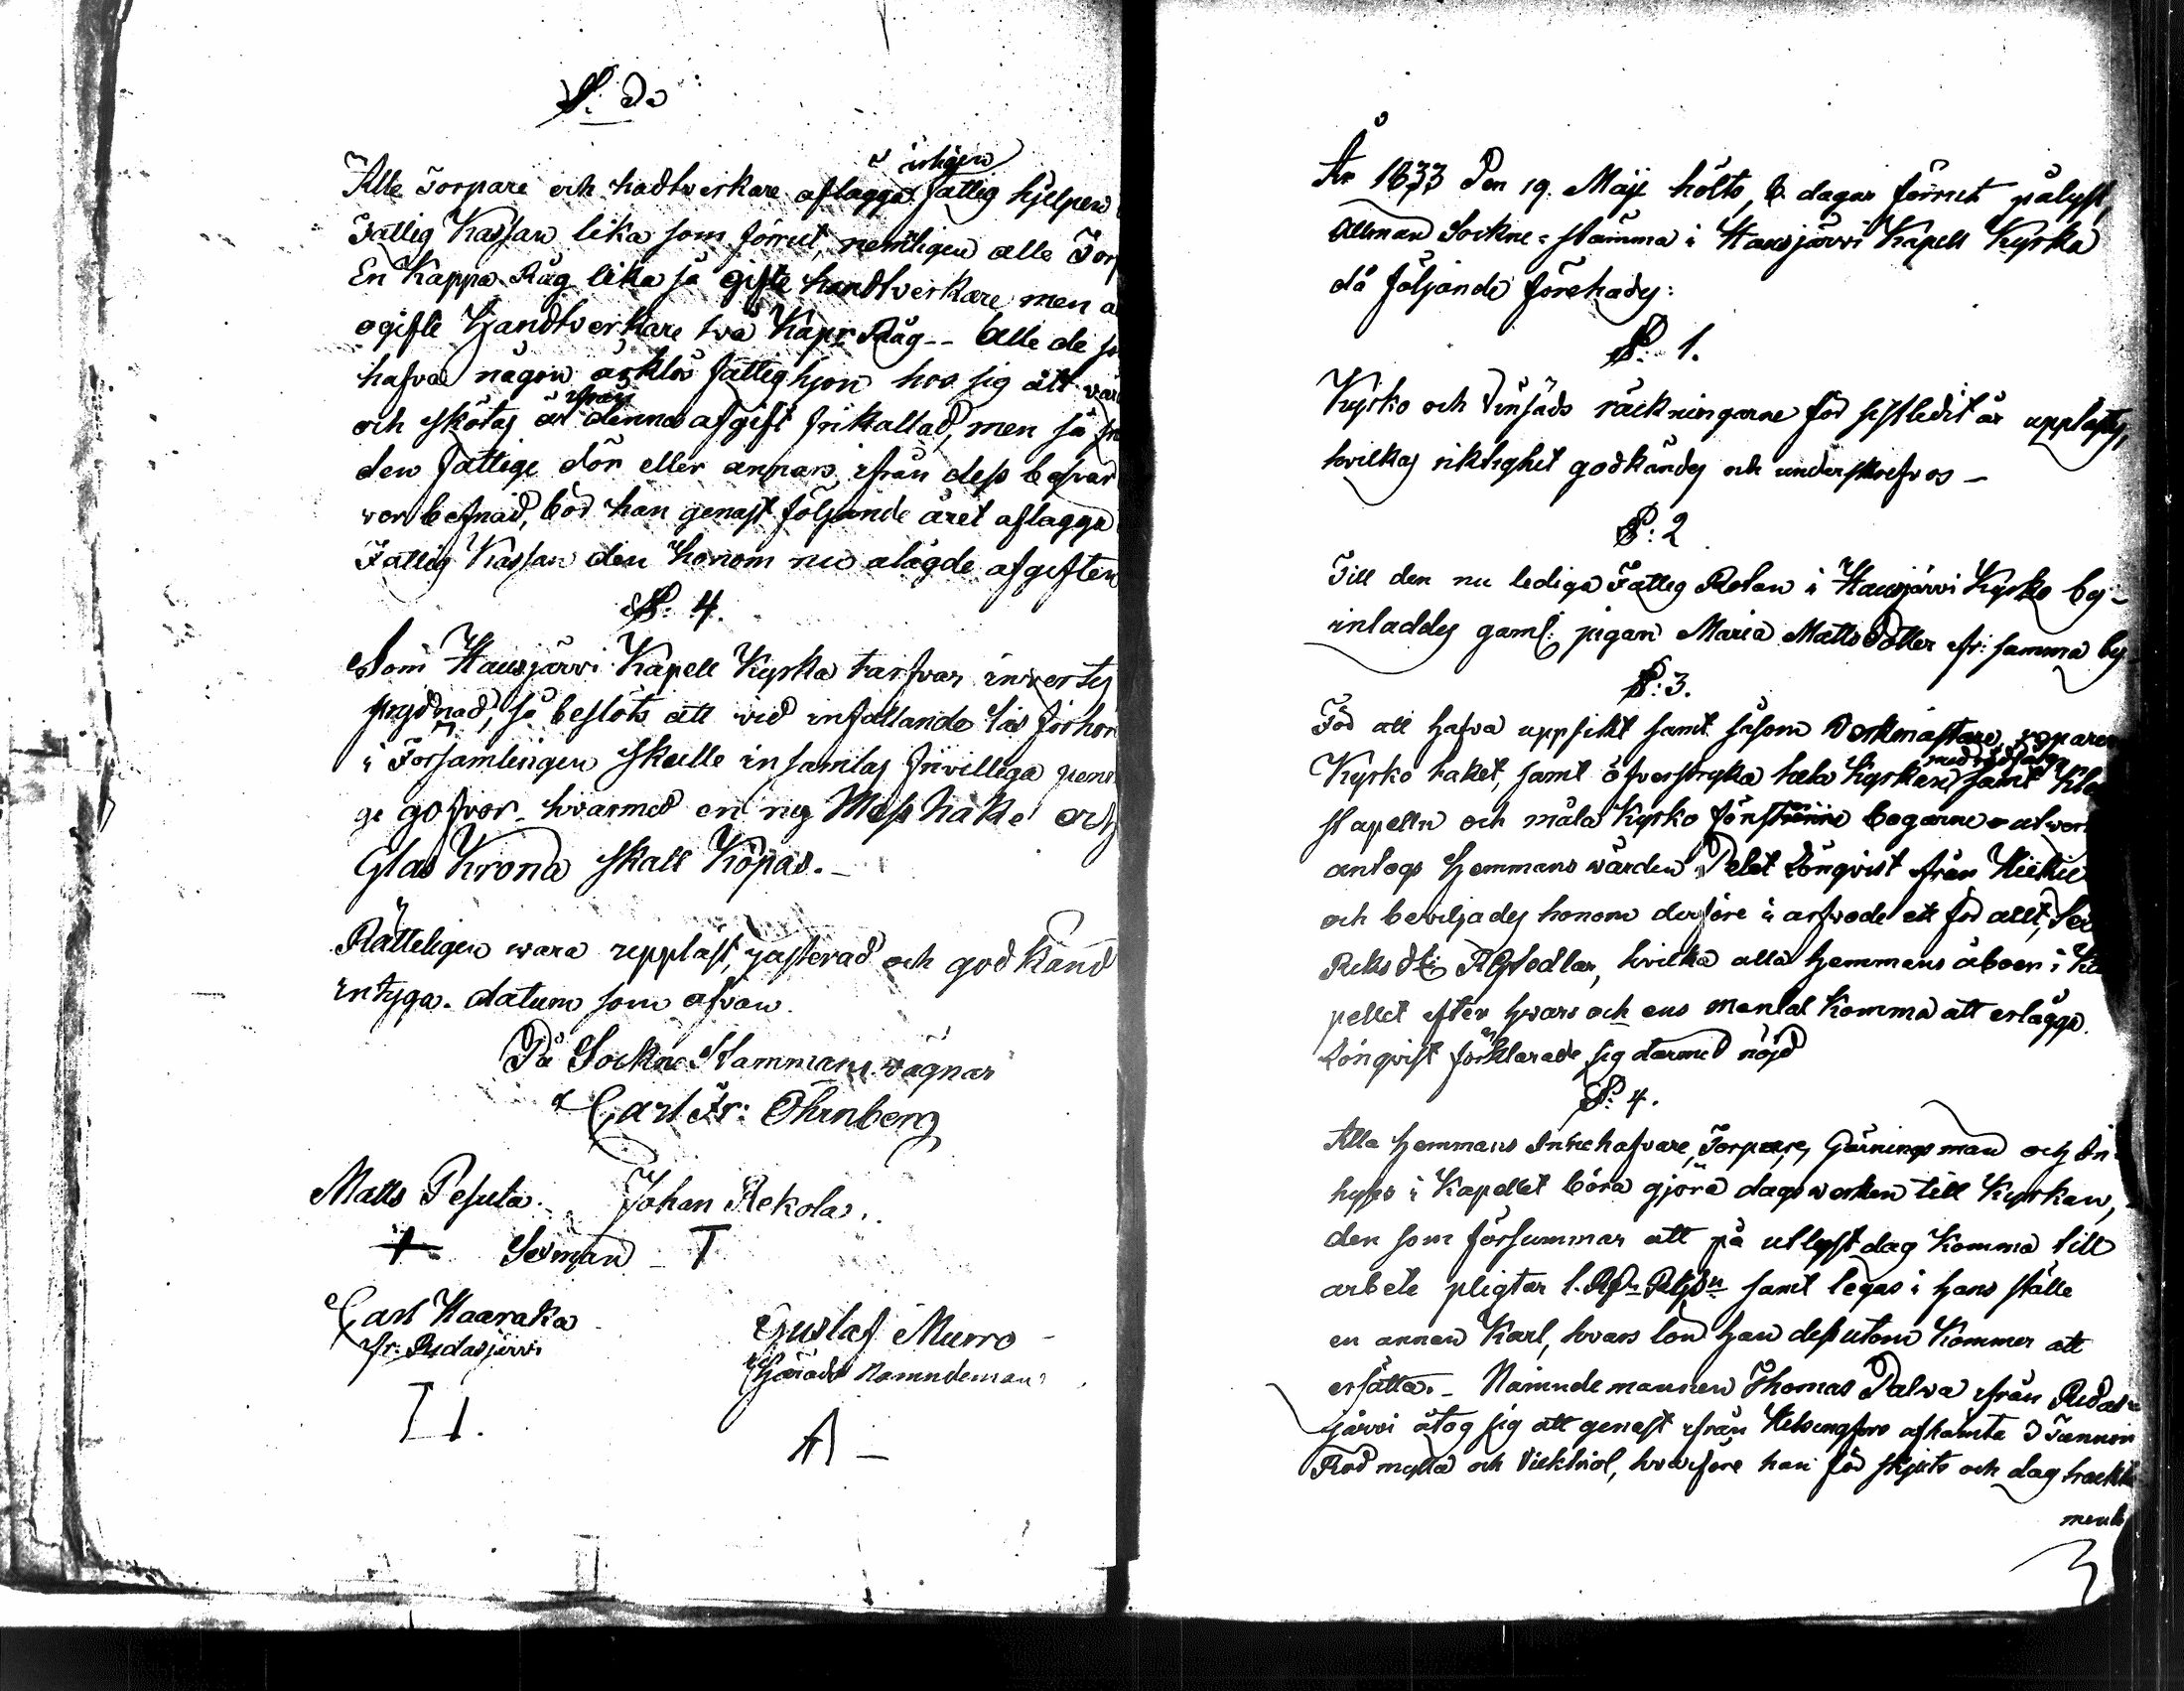 §. 3
årligen
Alle Torpare och hadtverkare aflägga fattig hjelpen
Fattig Kassan lika som förrut, nemligen alle Torp
En Kappa Råg lika så gifte handtverkare men a
ogifte Handtverkare två Kapr Råg -- Alle de so
hafva någon årklös fattighjon hos sig att vår
och skötas är ifrån dennes afgift frikallad, men så sn
den fattige dör eller annars ifrån dess besvär
ver befriad, bör han genast följande året aflägga
Fattig Kassan den honom nu alägde afgiften
§. 4.
Som Hausjärvi Kapell Kyrka tarfvar invertes
prydnad, så beslöts att vid infallande läs förhör
i Församlingen skulle insamlas frivilliga penn
ge gofvor hvarmed en ny Mess hake och
Glas Krona skall Köpas. -
Rätteligen wara uppläst, justerad och godkänd
intyga. datum som ofvan.
På Sockne Stämmans vägnar
Carl Fr: Öhrnberg
Matts Pesuta. Johan Rekola.
+ Sexmän T
Carl Haaraka
fr: Ridasjärvi
Gustaf Murro
Härads Nämndeman
År 1833 Den 19. Maji hölts, 8. dagar förrut pålyst,
Allmän Sockne-stämma i Hausjärvi Kapell Kyrka
då följande förehades:
§. 1.
Kyrko och räckningarne för sistledit år upplästes,
hvilkas riktighet godkändes och underskrefvos -
§: 2
Till den nu lediga Fattig Rotan i Hausjärvi Kyrko by -
inladdes gaml: pigan Maria Matts Dotter ifr: samma by
§: 3.
För att hafva uppsikt samt såsom Verkmästare reparera
Kyrko taket, samt öfverstryka hela Kyrkan med rödfärg samt Klo
stapeln och måla Kyrko fönster bogarne
antogs Hemmans wärden Lönqvist från
och beviljades honom derföre i arfvode ett för allt,
Riks dr RGsedlar, hvilka alla hemmans åboer i Ka
pellet efter hvars och ens mantal Komma att erlägga.
Lönqvist förklarade sig därmed nöjd
§: 4.
Alla Hemmans Innehafvare, Torpare, Gärningsmän och In-
hyses i Kapellet böra gjöra dagsverken till Kyrkan,
den som försummar att på utlyst dag Komma till
arbete pligtar 1. samt legas i hans ställe
en annan Karl, hvars lön han dessutom Kommer att
ersätta. - Nämndemannen Thomas Palva ifrån Ridas-
järvi åtog sig att genast ifrån Helsingfors afhämta 3 Tunnor
Röd mylla och Vicktriol, hvarföre han för skjuts och dag trackta
ments